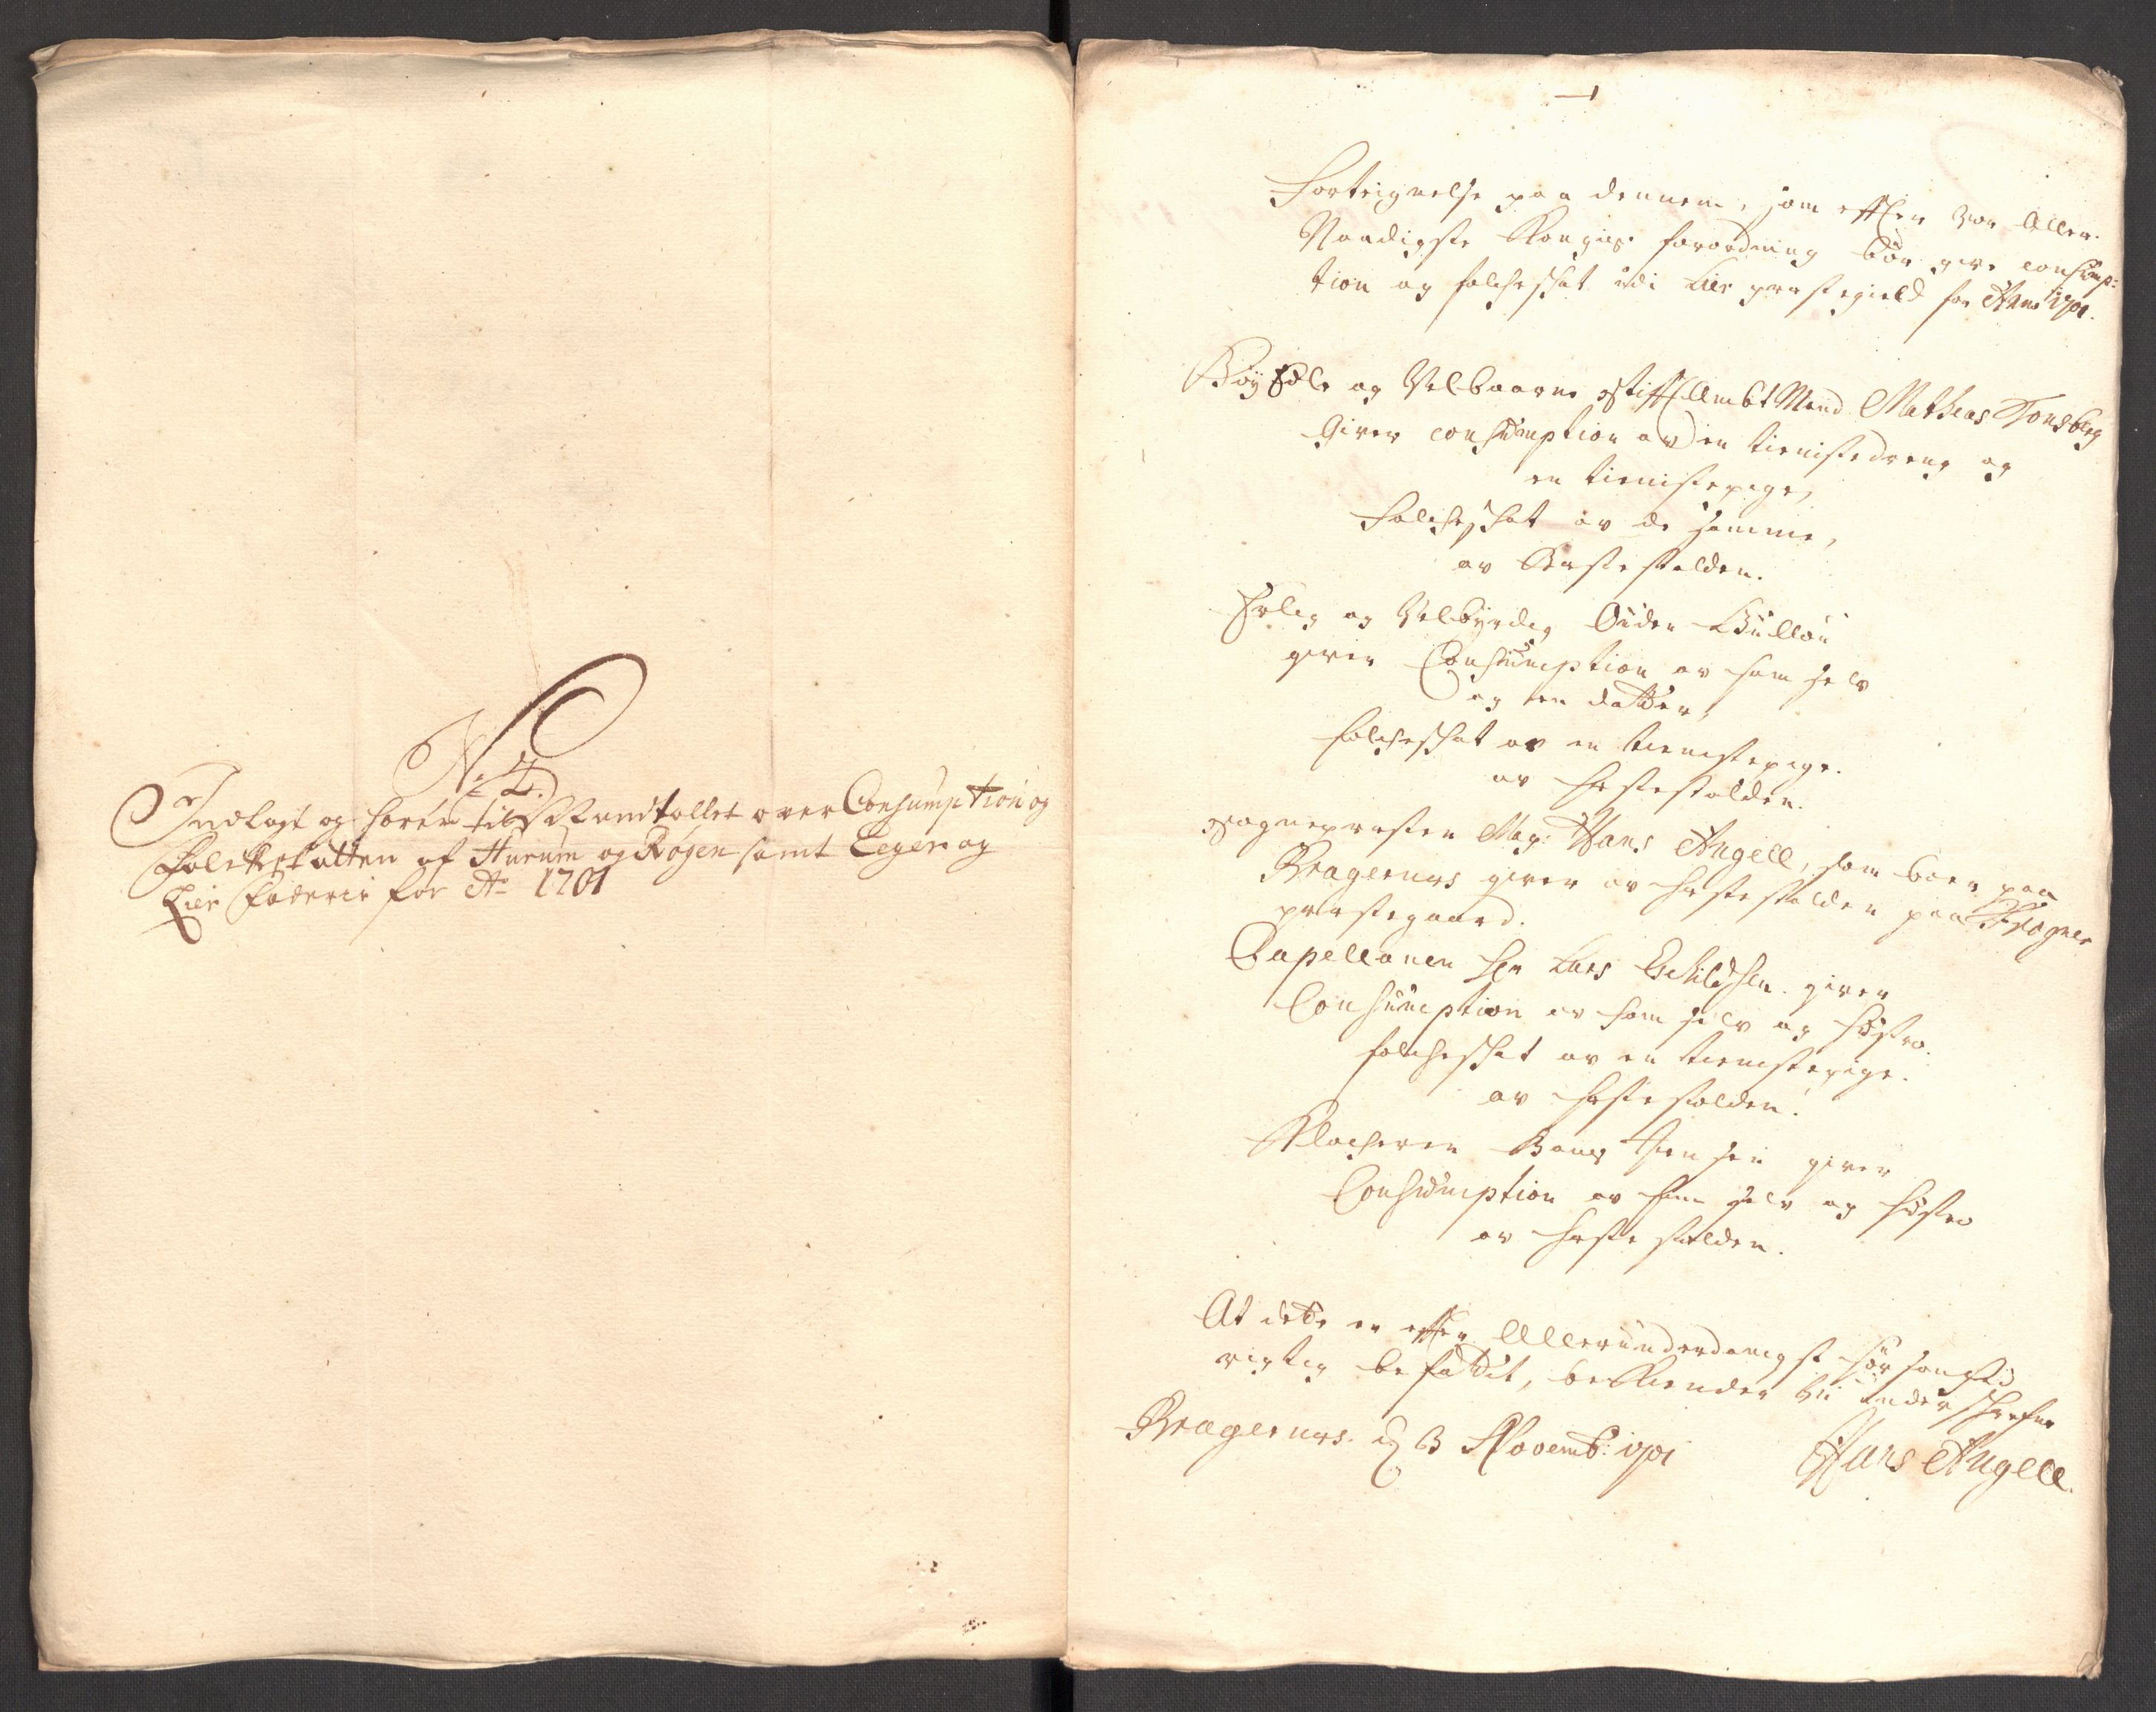 No 4.
Indlagt og hører til Mandtallet over Consumption og
Folkeskatten af Hurum og Røgen samt Eeger og
Lier Fogderie for Ao 1701
Forteignelse paa dennem, som effter vor Aller-
Naadigste Kongis forordning bør give consump-
tion og folcheschat udi Lier præstegield for Anno 1701.
Høyædle og Velbaarne Stifftambtmand Mathias Tonsberg
Giver consumption av en tienistedreng og
en tienistepige,
Folcheschat av de samme,
av hæstestalden.
Erlig og Velbyrdig Ouden Büllou
giver Consumption av ham selv
og en datter,
folcheschat av en tienistepige.
av hæstestalden.
Sognepræsten Mag: Hans Angell, som boer paa
Bragernæs giver av hæstestalden paa Frogner
præstegaard.
Capellanen Hr Lars Eschildsen giver
Consumption av ham selv og hüstro.
folcheschat av en tienistepige.
av hæstestalden.
Klocheren Bang Jensen giver
Consumption av ham selv og hüstro
av hæstestalden.
At dette er effter Allerunderdanigst
rigtig befattit, bekiender
Bragernæs d 3 Novemb: 1701
Hans Angell.